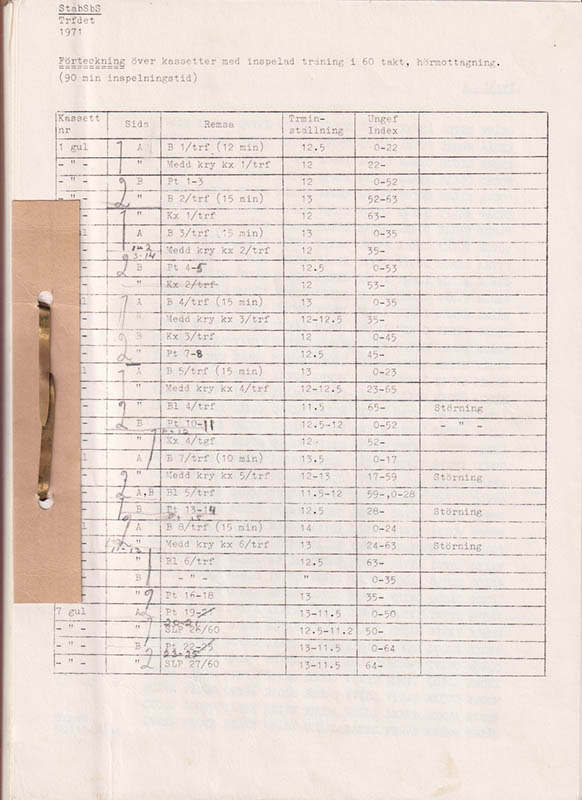 StabSbS
Trfdet
1971
Förteckning över kassetter med inspelad träning i 60 takt, hörmottagning.
(90 min inspelningstid)
Kassett nr Sida Remsa Trmin-ställning Ungef Index
1 gul 1 A B 1/trf (12 min) 12.5 0-22
- " - " Medd kry kx 1/trf 12 22-
- " - 2 B Pt 1-3 12 0-52
- " - " B 2/trf (15 min) 13 52-63
1 " Kx 1/trf 12 63-
A B 3/trf (15 min) 13 0-35
- " Medd kry kx 2/trf 12 35-
2 B Pt 4-5 12.5 0-53
" Kx 2/trf 12 53-
1 A B 4/trf (15 min) 13 0-35
" Medd kry kx 3/trf 12-12.5 35-
B Kx 3/trf 12 0-45
2 " Pt 7-8 12.5 45-
1 A B 5/trf (15 min) 13 0-23
" Medd kry kx 4/trf 12-12.5 23-65
2 " Bl 4/trf 11.5 65- Störning
B Pt 10-11 12.5-12 0-52 - " -
" Kx 4/tgf 12 52-
1 A B 7/trf (10 min) 13.5 0-17
2 " Medd kry kx 5/trf 12-13 17-59 Störning
A,B Bl 5/trf 11.5-12 59-,0-28
B Pt 13-14 12.5 28- Störning
A B 8/trf (15 min) 14 0-24
" Medd kry kx 6/trf 13 24-63 Störning
1 " Bl 6/trf 12.5 63-
B - " - " 0-35
" 2 Pt 16-18 13 35-
7 gul A Pt 19-21 13-11.5 0-50
- " - " 1 SLP 26/60 12.5-11.2 50-
- " - B Pt 22-25 13-11.5 0-64
- " - " 2 SLP 27/60 13-11.5 64-